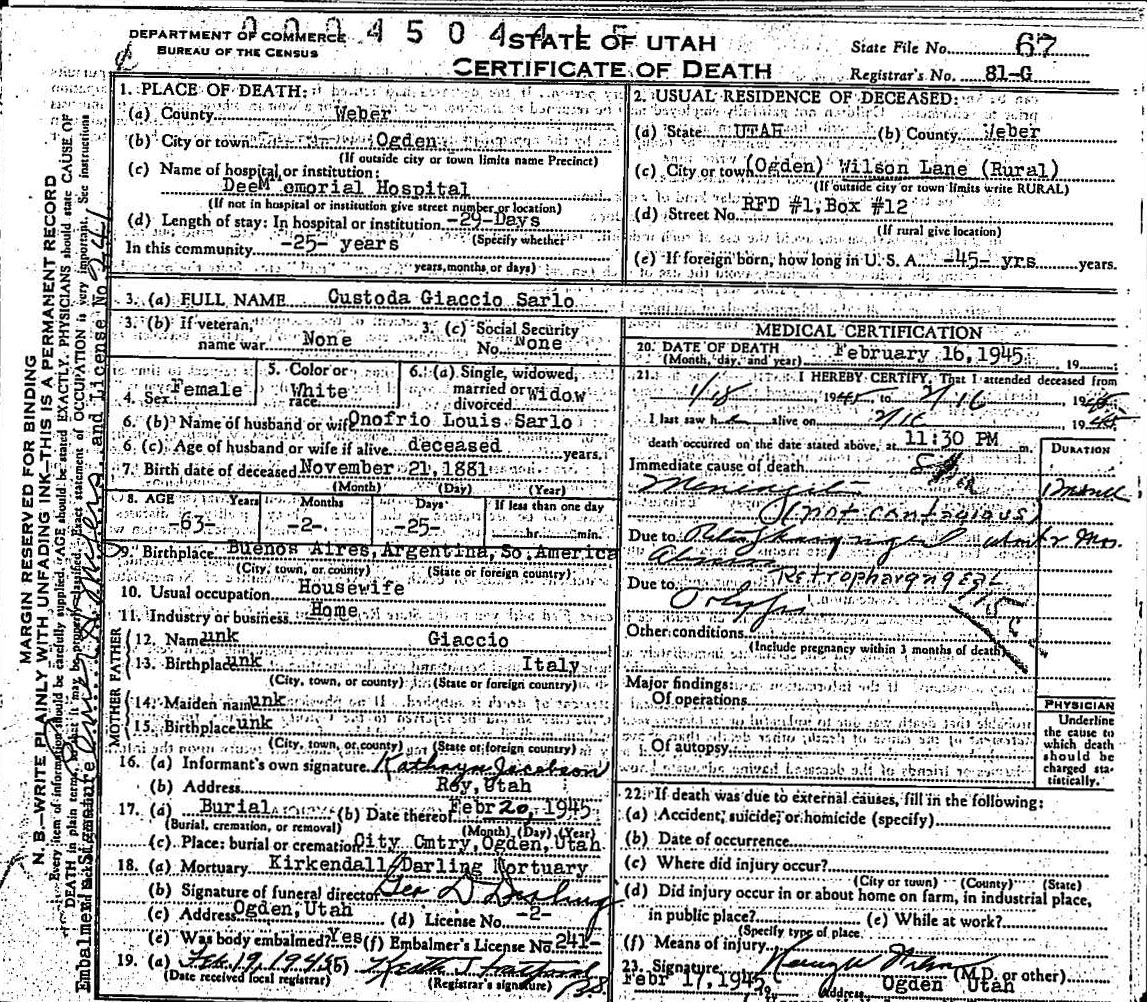 0 0 0 4 5 0 4 4
DEPARTMENT OF COMMERCE
BUREAU OF THE CENSUS
STATE OF UTAH
CERTIFICATE OF DEATH
State File No. 67
Registrar's No. 81-G
1. PLACE OF DEATH:
(a) County Weber
(b) City or town Ogden
(If outside city or town limits name Precinct)
(c) Name of hospital or institution:
Dee Memorial Hospital
(If not in hospital or institution give street number or location)
(d) Length of stay: In hospital or institution -29-Days
(Specify whether
In this community -25- years
years, months or days)
2. USUAL RESIDENCE OF DECEASED:
(a) State UTAH (b) County Weber
(c) City or town (Ogden) Wilson Lane (Rural)
(If outside city or town limits write RURAL)
(d) Street No. RFD #1, Box #12
(If rural give location)
(e) If foreign born, how long in U. S. A. -45- yrs years.
3. (a) FULL NAME Custoda Giaccio Sarlo
3. (b) If veteran, name war None
3. (c) Social Security No. None
4. Sex Female
5. Color or race White
6. (a) Single, widowed, married or divorced Widow
6. (b) Name of husband or wife Onofrio Louis Sarlo
6. (c) Age of husband or wife if alive deceased years.
7. Birth date of deceased November 21, 1881
(Month) (Day) (Year)
8. AGE Years Months Days If less than one day
-63- -2- -25- hr. min.
9. Birthplace Buenos Aires, Argentina, So. America
(City, town, or county) (State or foreign country)
10. Usual occupation Housewife
11. Industry or business Home
FATHER
12. Name unk Giaccio
13. Birthplace unk Italy
(City, town, or county) (State or foreign country)
MOTHER
14. Maiden name unk
15. Birthplace unk
(City, town, or county) (State or foreign country)
16. (a) Informant's own signature Kathryn Jacobson
(b) Address Roy, Utah
17. (a) Burial (b) Date thereof Febr 20, 1945
(Burial, cremation, or removal) (Month) (Day) (Year)
(c) Place: burial or cremation City Cmtry, Ogden, Utah
18. (a) Mortuary Kirkendall Darling Mortuary
(b) Signature of funeral director Geo D Darling
(c) Address Ogden, Utah (d) License No. -2-
(e) Was body embalmed? Yes (f) Embalmer's License No. 241-
19. (a) Feb 19, 1945 (b)
(Date received local registrar) (Registrar's signature)
MEDICAL CERTIFICATION
20. DATE OF DEATH February 16, 1945 19
(Month, day, and year)
21. I HEREBY CERTIFY, That I attended deceased from
1/18 1945 to 2/16 1945
I last saw h alive on 2/16 1945
death occurred on the date stated above, at 11:30 PM m.
DURATION
Immediate cause of death
Meningitis
(not contagious)
Due to 2 Mos.
Retropharyngeal
Due to
Other conditions
(Include pregnancy within 3 months of death)
Major findings:
Of operations
Of autopsy
PHYSICIAN
Underline
the cause to
which death
should be
charged sta-
tistically.
22. If death was due to external causes, fill in the following:
(a) Accident, suicide, or homicide (specify)
(b) Date of occurrence
(c) Where did injury occur?
(City or town) (County) (State)
(d) Did injury occur in or about home on farm, in industrial place,
in public place? (e) While at work?
(Specify type of place
(f) Means of injury
23. Signature (M.D. or other)
Febr 17, 1945 Address Ogden Utah
MARGIN RESERVED FOR BINDING
N. B.—WRITE PLAINLY WITH UNFADING INK—THIS IS A PERMANENT RECORD
Every item of information should be carefully supplied. AGE should be stated EXACTLY. PHYSICIANS should state CAUSE OF
DEATH in plain terms, so that it may be properly classified. Exact statement of OCCUPATION is very important. See instructions
Embalmers Signature and License No. 241